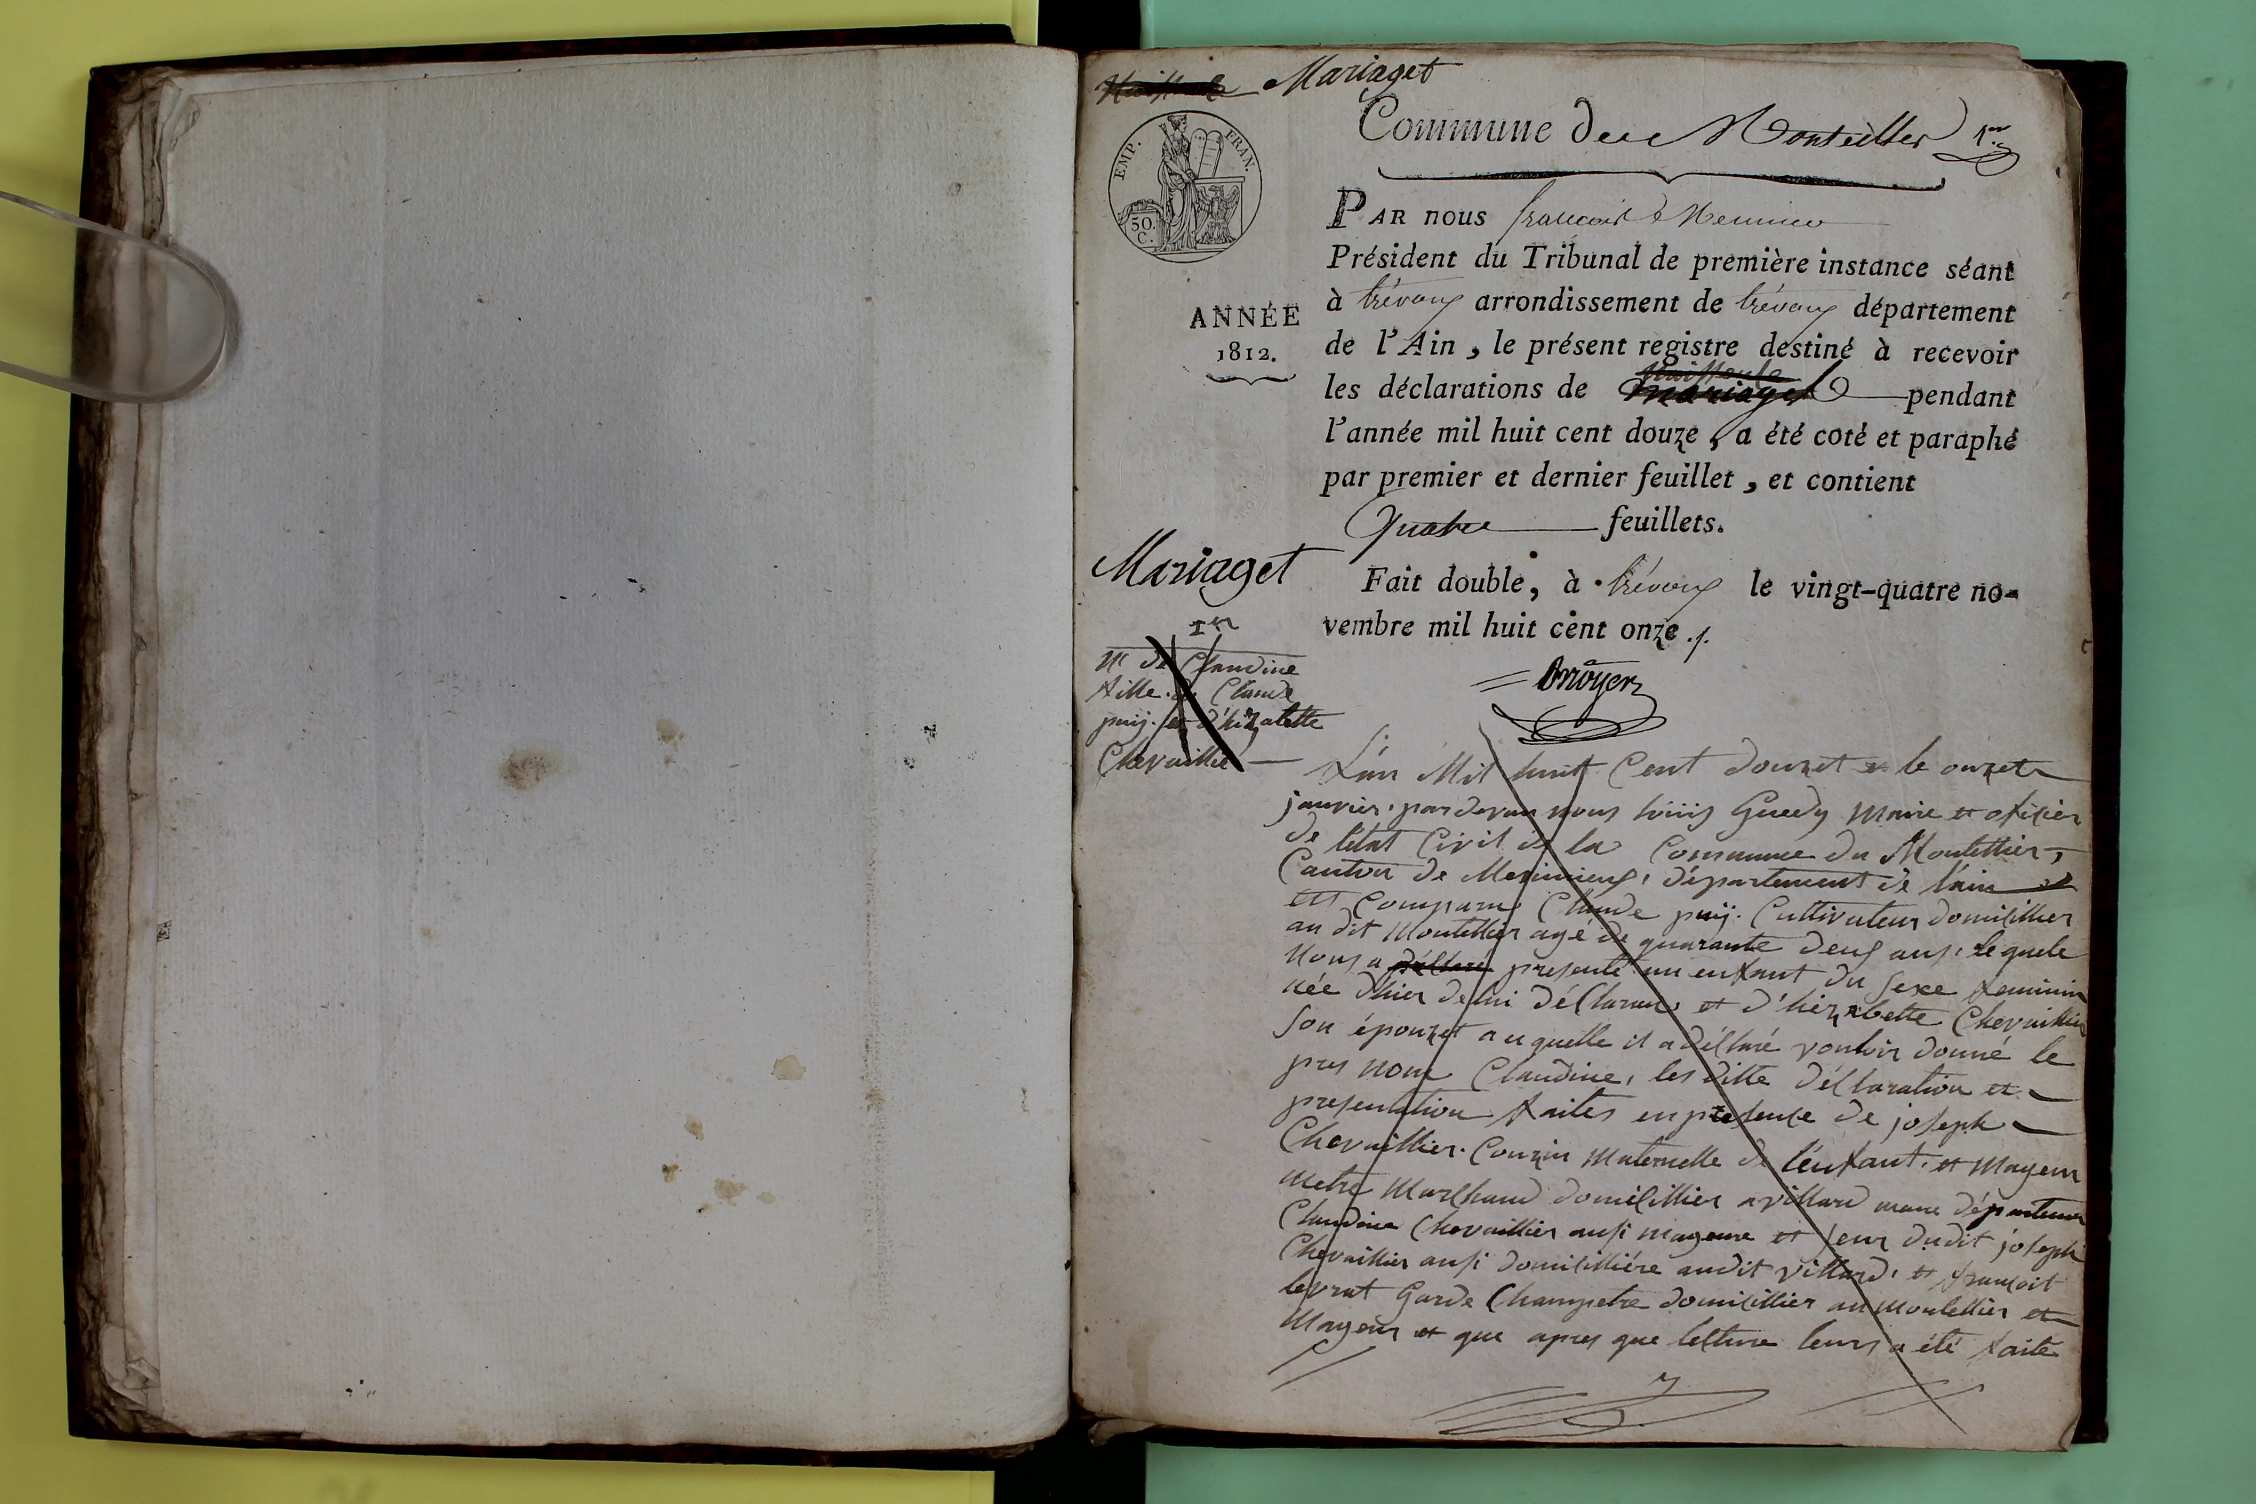 Mariaget
Commune de Montellier 1er
EMP. FRAN.
50.
C.
PAR nous françois
Président du Tribunal de première instance séant
à trévoux arrondissement de trévoux département
de l'Ain, le présent registre destiné à recevoir
les déclarations de mariages pendant
l'année mil huit cent douze, a été coté et paraphé
par premier et dernier feuillet, et contient
Quatre feuillets.
ANNÉE
1812.
Mariaget
Fait double, à trévoux le vingt-quatre no-
vembre mil huit cent onze.
1er
N de Claudine
fille de Claude
puij. et d'hizabette
Chevaillier
L'an Mil huit Cent douzet le onzet
janvier. par devan nous louis Guedy Maire et oficier
de l'état Civil de la Commune du Montellier,
Canton de Meximieux, département de l'ain
est Comparu Claude puij. Cultivateur domicillier
au dit Montellier agé de quarante deux ans, lequele
Nous a déclare presenté un enfant du sexe feminin
née d'hier de lui déClarant et d'hizabette Chevaillier
son épouzet auquelle il a déclaré vouloir donné le
pres nom Claudine, les ditte déClaration et
presentation faites en presence de joseph
Chevaillier. Couzin Maternelle de l'enfant. et Mageur
Metre Marchand domicillier a villard meme département
Claudine Chevaillier ausi mageure et seur dudit joseph
Chevaillier ausi domicilliére audit villard, et françoit
levrat Garde Champetre domicillier au Montellier et
Mageur et que apres que lecture leurs a été faite